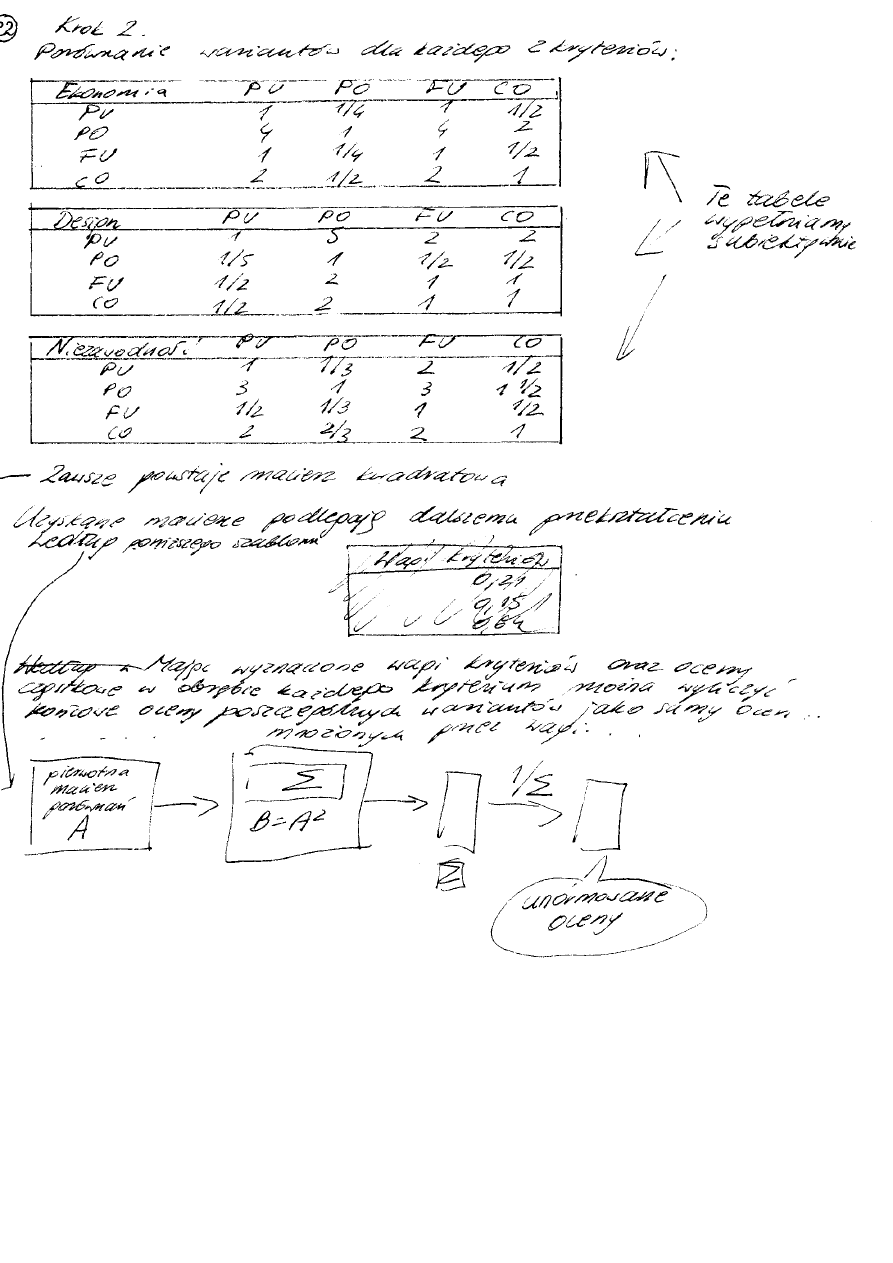 Krok 2.
Porównanie wariantów dla każdego z kryteriów:
Ekonomia PU PO FU CO
PU 1 1/4 1 1/2
PO 4 1 4 2
FU 1 1/4 1 1/2
CO 2 1/2 2 1
Te tabele
wypełniamy
subiektywnie
Design PU PO FU CO
PU 1 5 2 2
PO 1/5 1 1/2 1/2
FU 1/2 2 1 1
CO 1/2 2 1 1
Niezawodność PU PO FU CO
PU 1 1/3 2 1/2
PO 3 1 3 1 1/2
FU 1/2 1/3 1 1/2
CO 2 2/3 2 1
— Zawsze powstaje macierz kwadratowa
Uzyskane macierze podlegają dalszemu przekształceniu
według poniższego szablonu
Wagi kryteriów
0,21
0,15
0,64
Mając wyznaczone wagi kryteriów oraz oceny
cząstkowe w obrębie każdego kryterium można wyliczyć
końcowe oceny poszczególnych wariantów jako sumy ocen ..
mnożonych przez wagi...
pierwotna
macierz
porównań
A
Σ
B=A²
Σ
1/Σ
unormowane
oceny